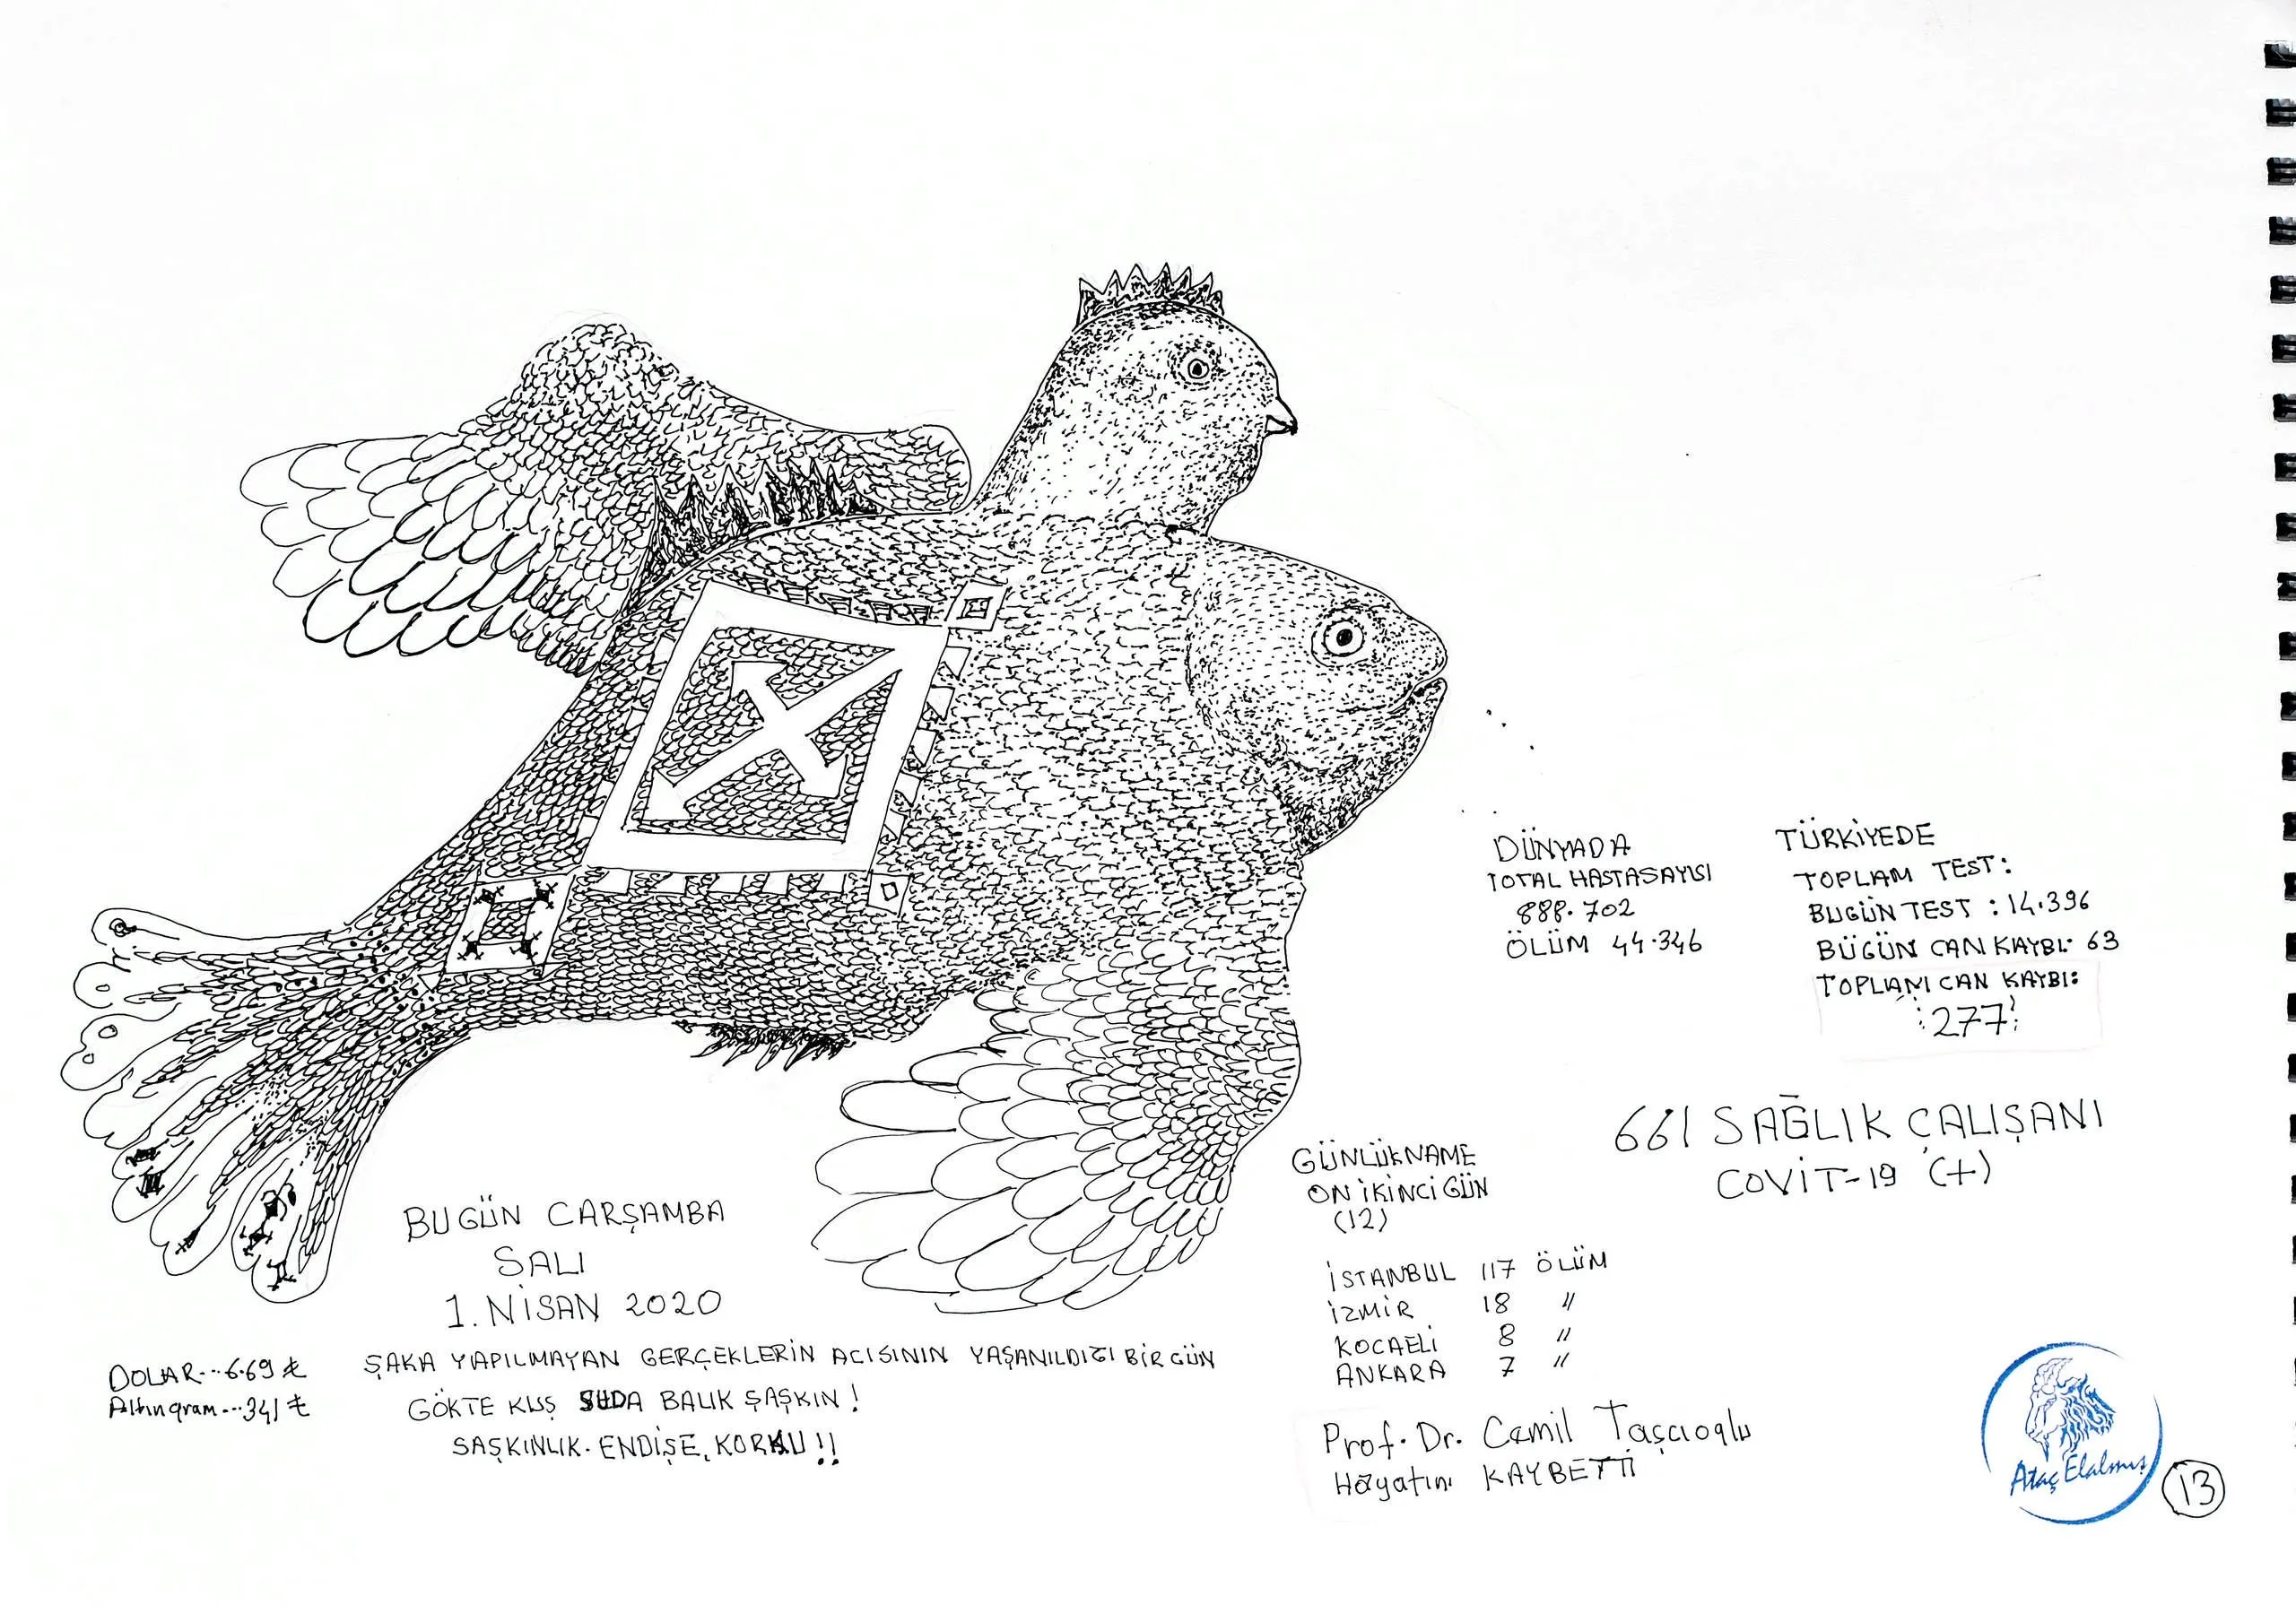 DÜNYADA
TOTAL HASTASAYISI
888.702
ÖLÜM 44.346
TÜRKİYEDE
TOPLAM TEST:
BUGÜN TEST : 14.396
BÜGÜN CAN KAYBI: 63
TOPLAM CAN KAYBI:
277
661 SAĞLIK ÇALIŞANI
COVİT-19 (+)
GÜNLÜKNAME
ON İKİNCİ GÜN
(12)
İSTANBUL 117 ÖLÜM
İZMİR 18 "
KOCAELİ 8 "
ANKARA 7 "
Prof. Dr. Cemil Taşcıoglu
Hayatını KAYBETTİ
BUGÜN CARŞAMBA
SALI
1. NİSAN 2020
ŞAKA YAPILMAYAN GERÇEKLERİN ACISININ YAŞANILDIĞI BİR GÜN
GÖKTE KUŞ SUDA BALIK ŞAŞKIN!
SAŞKINLIK. ENDİŞE, KORKU!!
DOLAR...6.69 ₺
Altıngram...341 ₺
Ataç Elalmış
13